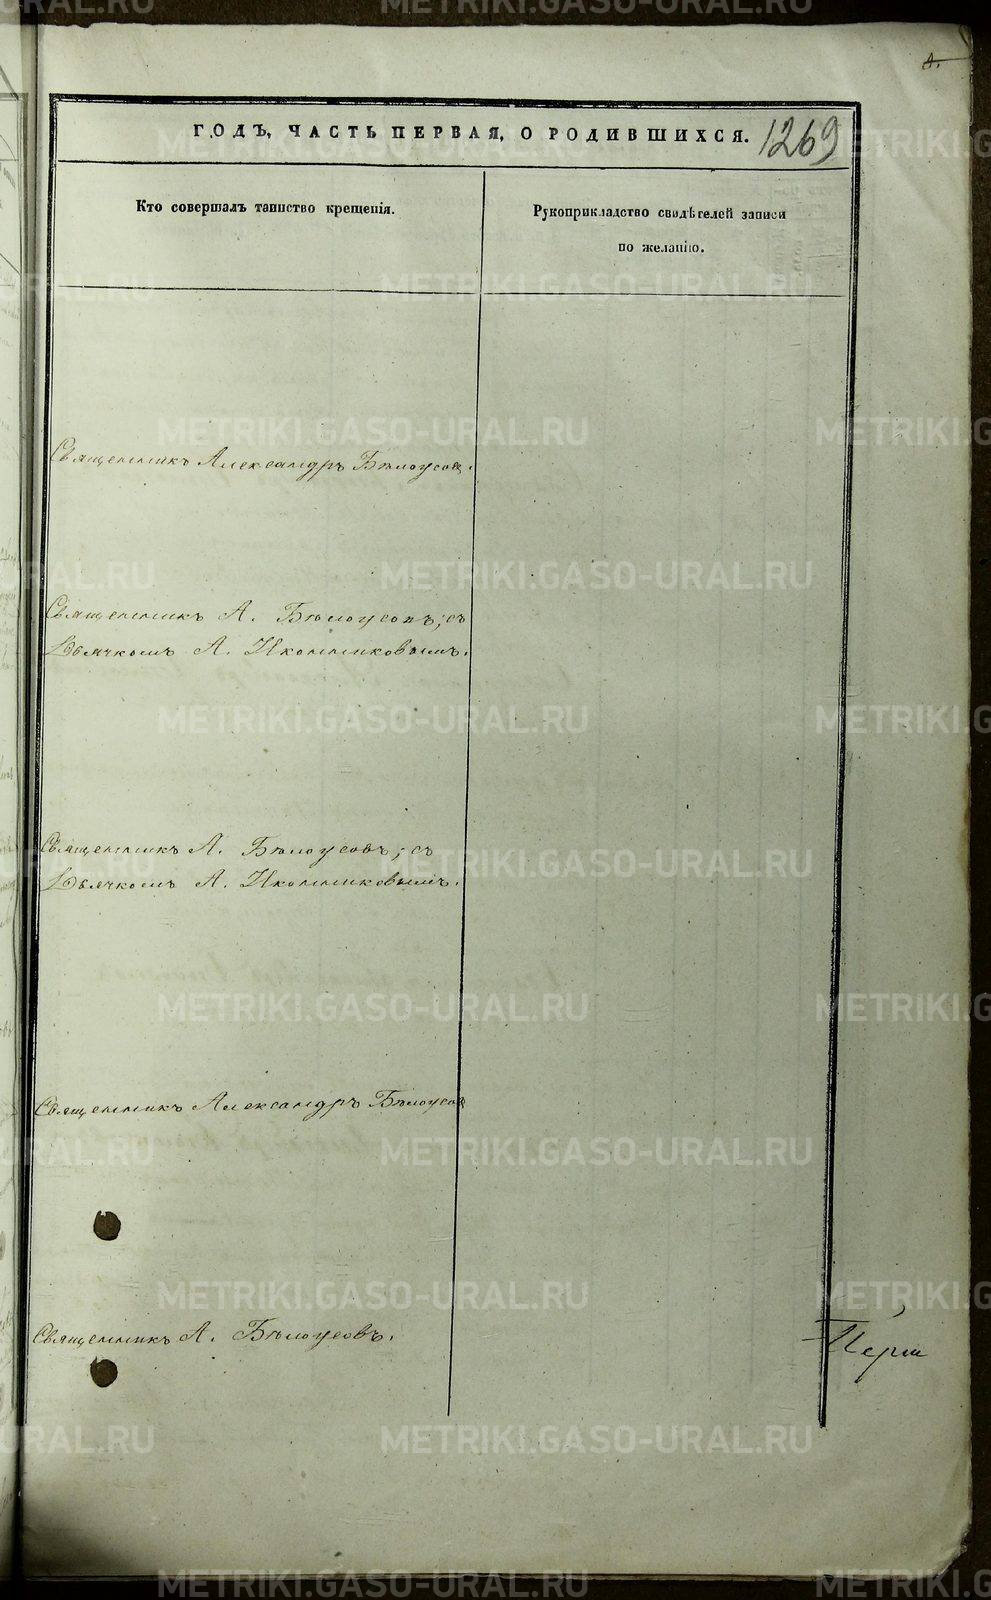 4.
ГОДЪ, ЧАСТЬ ПЕРВАЯ, О РОДИВШИХСЯ. 1269
Кто совершалъ таинство крещенія.
Рукоприкладство свидѣтелей записи
по желанію.
Священникъ Александръ Бѣлоусов.
Священникъ А. Бѣлоусовъ; съ
Дьячкомъ А. Иконниковымъ.
Священникъ А. Бѣлоусовъ; съ
Дьячкомъ А. Иконниковымъ.
Священникъ Александръ Бѣлоусов
Священникъ А. Бѣлоусовъ.
METRIKI.GASO-URAL.RU